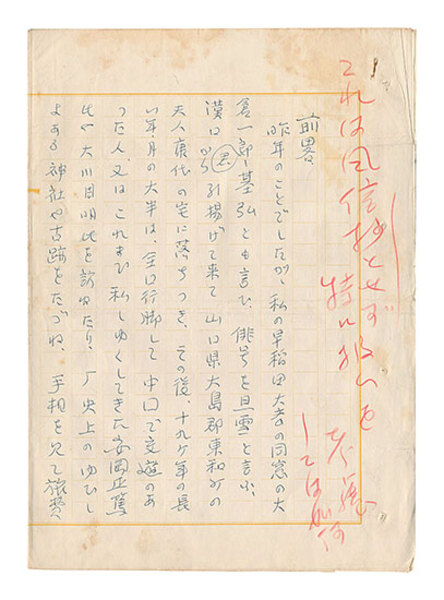 これは風信抄とせず
特に扱いを
しては如何
前略、
昨年のことでしたが、私の早稲田大学の同窓の大
倉一郎、基弘とも言ひ、俳号を旦雪と言ふ、
君
漢口から引揚げて来て山口県大島郡東和町の
夫人康代の宅に落ちつき、その後、十九ヶ年の長
い年月の大半は、全国行脚して中国で交遊のあ
った人、又はこれまで私しゆくしてきた安岡正篤
氏や大川周明氏を訪ねたり、厂史上のゆいし
よある神社や古跡をたづね、手相を見て旅費